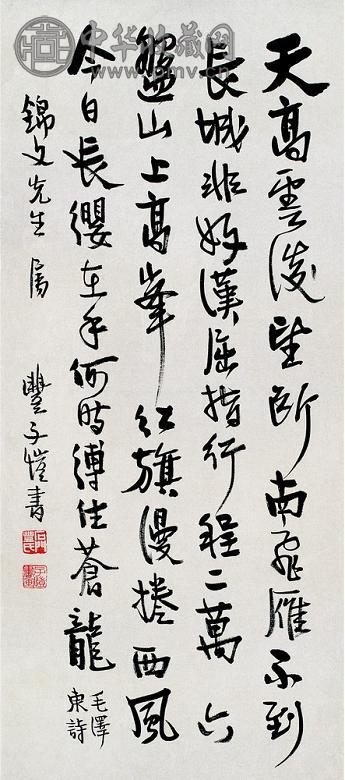 天高雲淡望断南飛雁不到
長城非好漢屈指行程二萬 六
盤山上高峰紅旗漫捲西風
今日長纓在手何時縛住蒼龍
毛澤
東詩
錦文先生属
豐子愷書
石門豐氏
中华收藏网